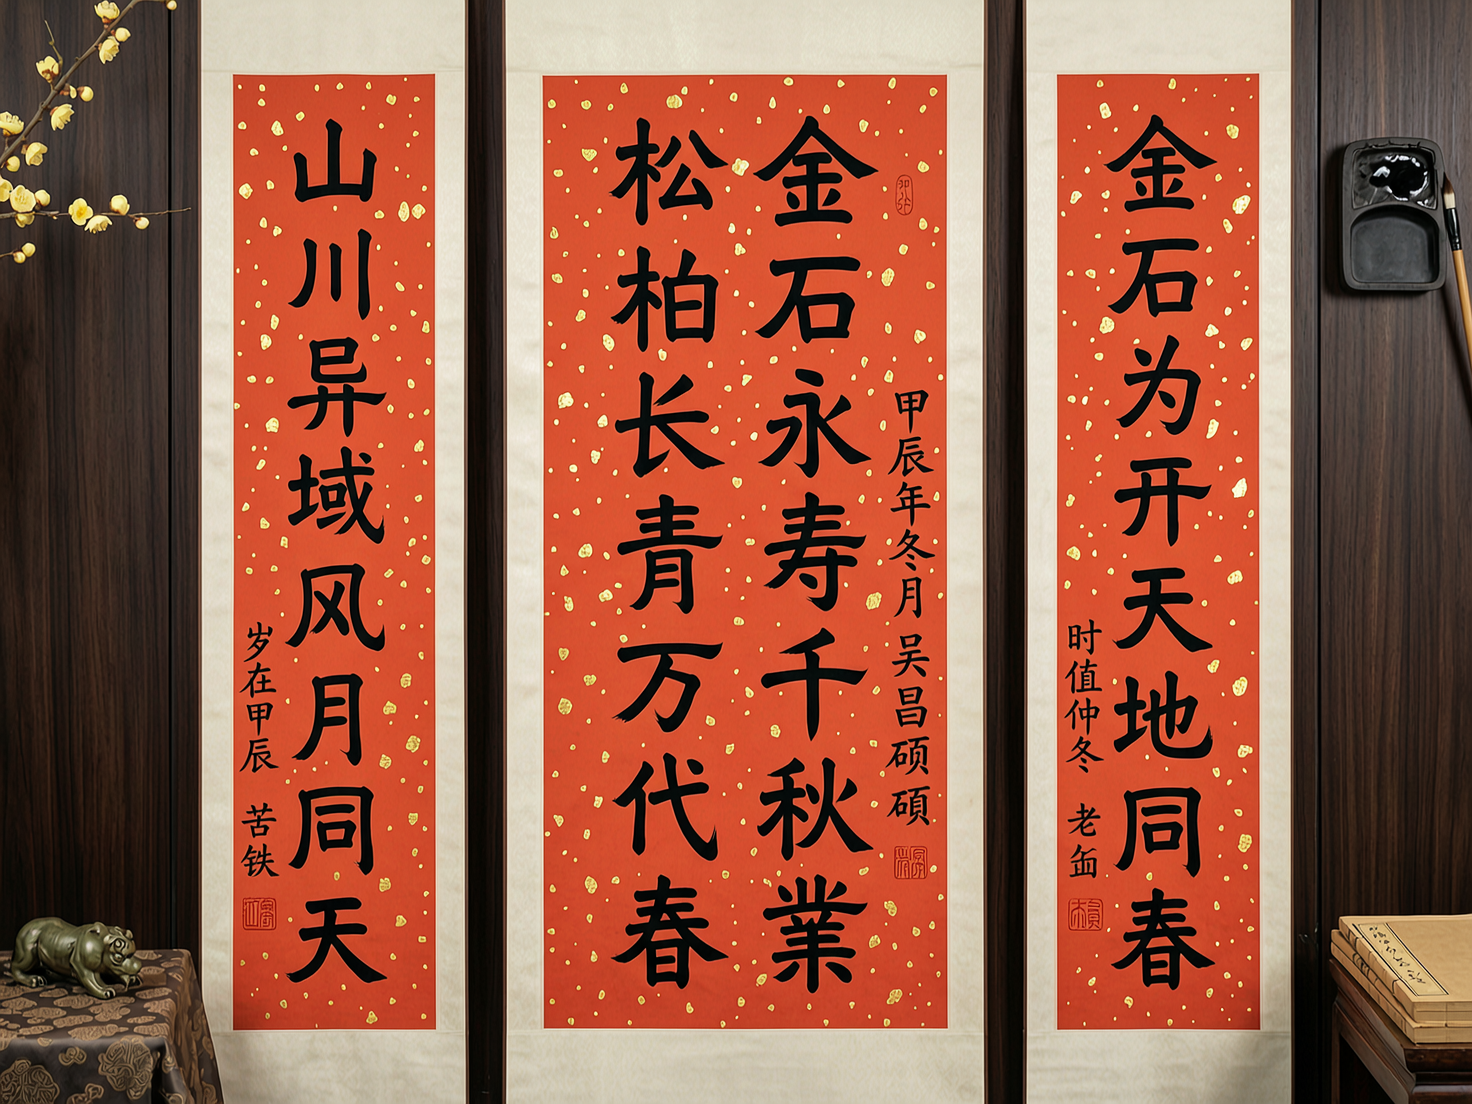 金石为开天地同春
时值仲冬 老缶
甲辰年冬月 吴昌硕碩
金石永寿千秋業
松柏长青万代春
山川异域风月同天
岁在甲辰 苦铁